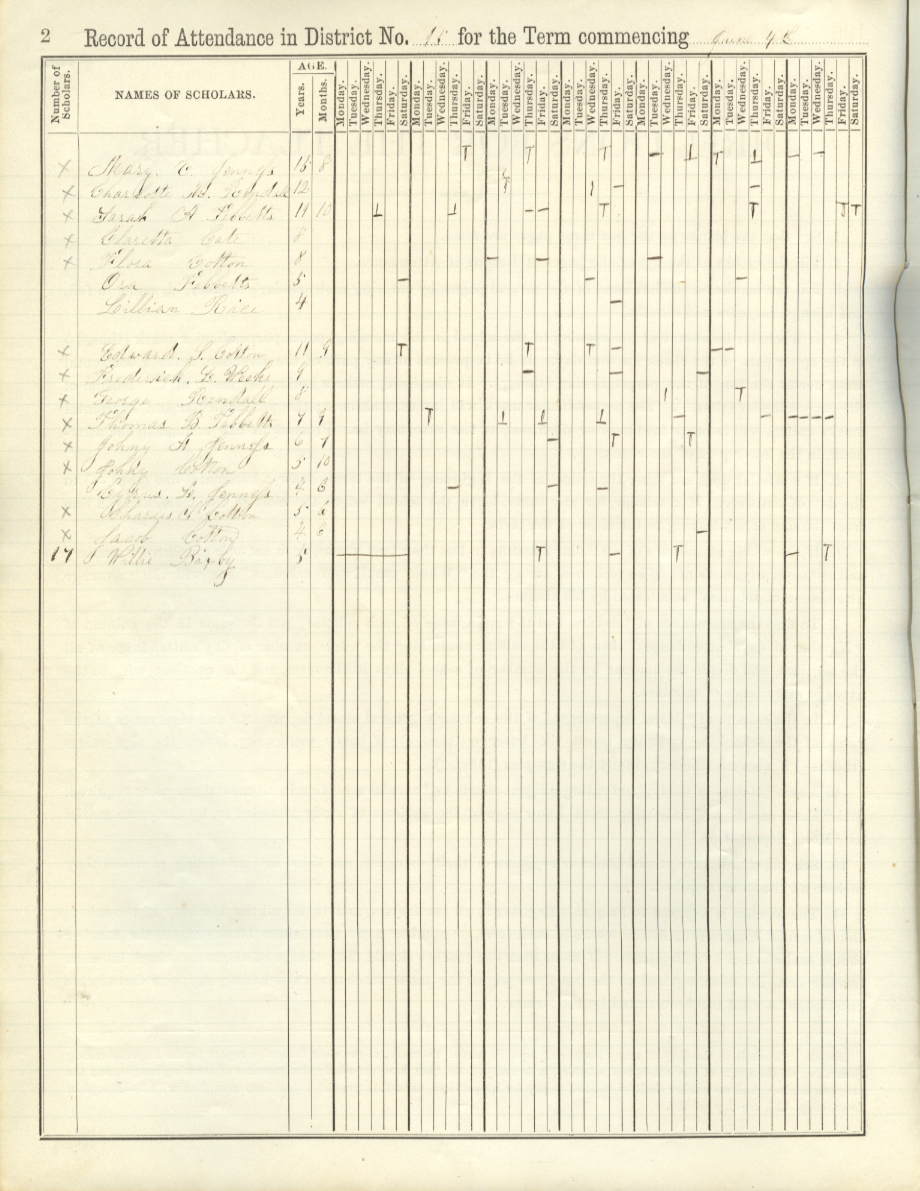 2 Record of Attendance in District No. 15 for the Term commencing June
Number of Scholars. NAMES OF SCHOLARS. AGE. Years. Months. Monday. Tuesday. Wednesday. Thursday. Friday. Saturday. Monday. Tuesday. Wednesday. Thursday. Friday. Saturday. Monday. Tuesday. Wednesday. Thursday. Friday. Saturday. Monday. Tuesday. Wednesday. Thursday. Friday. Saturday. Monday. Tuesday. Wednesday. Thursday. Friday. Saturday. Monday. Tuesday. Wednesday. Thursday. Friday. Saturday. Monday. Tuesday. Wednesday. Thursday. Friday. Saturday.
x Mary. E. Jenness 15 8
x Charlotte M. Kendall 12
x Sarah A Tibbetts 11 10
x Claretta Cate 8
x Flora Cotton 8
Ora Tibbetts 5
Lillian Rice 4
x Edward. S. Cotton 11 9
x Frederick. L. Weeks 9
x George Kendall 8
x Thomas B. Tibbetts 7 9
x Johny A Jenness 6 7
x Johny Cotton 5 10
Cyrus. L. Jenness 4 6
x Charles Cotton 5 6
x Jacob Cotton 4 6
17 Willie Bixby 5